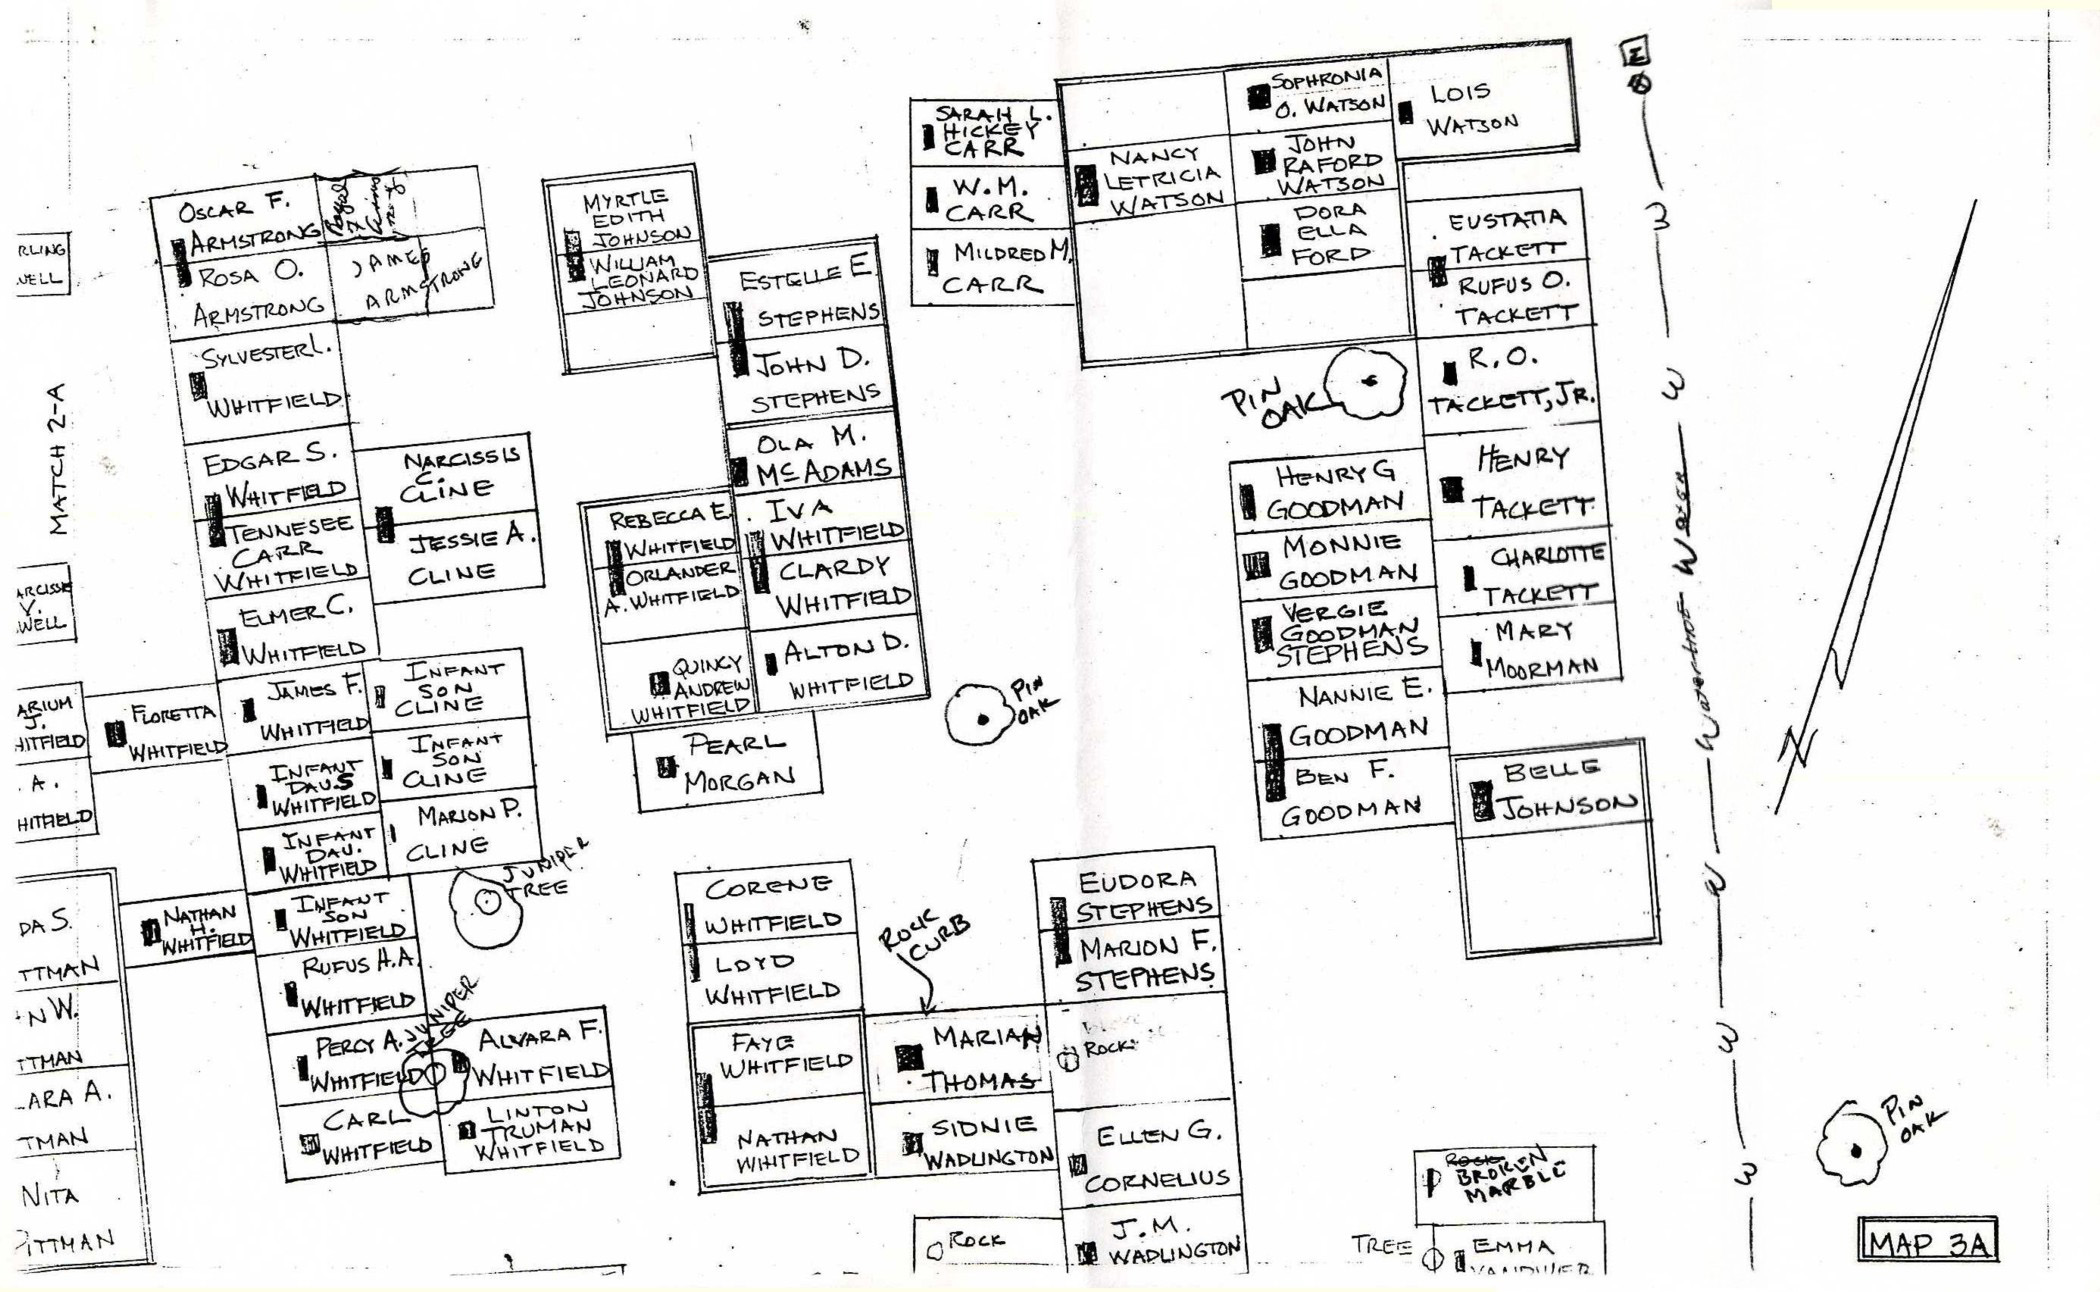 RLING
WELL
MATCH 2-A
ARCISSIE
V.
WELL
ARIUM
J.
HITFIELD
. A.
HITFIELD
DA S.
TTMAN
N W.
TTMAN
ARA A.
TMAN
NITA
PITTMAN
OSCAR F.
ARMSTRONG
ROSA O.
ARMSTRONG
JAMES
ARMSTRONG
SYLVESTER L.
WHITFIELD
EDGAR S.
WHITFIELD
TENNESEE
CARR
WHITFIELD
NARCISSIS
C.
CLINE
JESSIE A.
CLINE
ELMER C.
WHITFIELD
FLORETTA
WHITFIELD
JAMES F.
WHITFIELD
INFANT
SON
CLINE
INFANT
DAU.S
WHITFIELD
INFANT
SON
CLINE
INFANT
DAU.
WHITFIELD
MARION P.
CLINE
JUNIPER
TREE
NATHAN
H.
WHITFIELD
INFANT
SON
WHITFIELD
RUFUS H.A.
WHITFIELD
JUNIPER
TREE
PERCY A.
WHITFIELD
ALVARA F.
WHITFIELD
CARL
WHITFIELD
LINTON
TRUMAN
WHITFIELD
MYRTLE
EDITH
JOHNSON
WILLIAM
LEONARD
JOHNSON
ESTELLE E
STEPHENS
JOHN D.
STEPHENS
OLA M.
McADAMS
REBECCA E.
WHITFIELD
ORLANDER
A. WHITFIELD
IVA
WHITFIELD
CLARDY
WHITFIELD
QUINCY
ANDREW
WHITFIELD
ALTON D.
WHITFIELD
PEARL
MORGAN
PIN
OAK
CORENE
WHITFIELD
LOYD
WHITFIELD
ROCK
CURB
FAYE
WHITFIELD
NATHAN
WHITFIELD
MARIAN
THOMAS
SIDNIE
WADLINGTON
EUDORA
STEPHENS
MARION F.
STEPHENS
ROCK
ELLEN G.
CORNELIUS
ROCK
J.M.
WADLINGTON
SARAH L.
HICKEY
CARR
W.M.
CARR
MILDRED M.
CARR
NANCY
LETRICIA
WATSON
SOPHRONIA
O. WATSON
JOHN
RAFORD
WATSON
DORA
ELLA
FORD
LOIS
WATSON
EUSTATIA
TACKETT
RUFUS O.
TACKETT
PIN
OAK
R.O.
TACKETT, JR.
HENRY G
GOODMAN
HENRY
TACKETT
MONNIE
GOODMAN
CHARLOTTE
TACKETT
VERGIE
GOODMAN
STEPHENS
MARY
MOORMAN
NANNIE E.
GOODMAN
BEN F.
GOODMAN
BELLE
JOHNSON
W
W
W
W
W
W
W
PIN
OAK
ROCK
BROKEN
MARBLE
TREE
EMMA
VANDIVER
MAP 3A